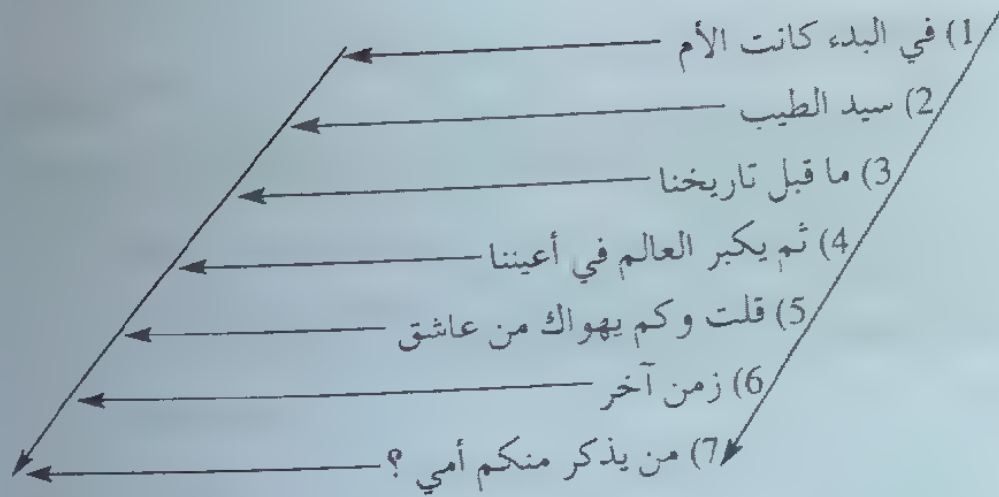 1) في البدء كانت الأم
2) سيد الطيب
3) ما قبل تاريخنا
4) ثم يكبر العالم في أعيننا
5) قلت وكم يهواك من عاشق
6) زمن آخر
7) من يذكر منكم أمي ؟